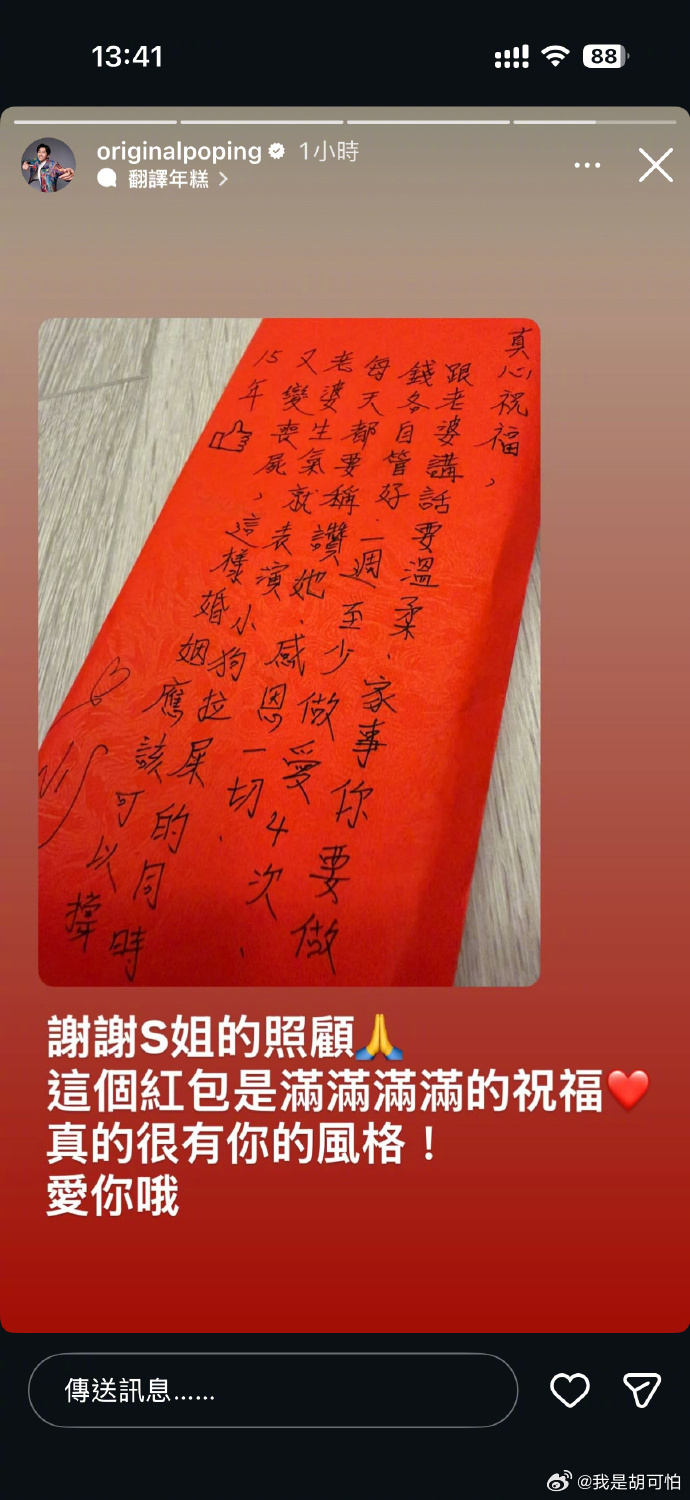 13:41
88
originalpoping 1小時
翻譯年糕
真心祝福，
跟老婆講話要溫柔、家事你要做
錢各自管好．一週至少做愛4次、
每天都要稱讚她．感恩一切．
老婆生氣就表演小狗拉屎的同時
又變喪屍，這樣婚姻應該可以撐
15年
謝謝S姐的照顧🙏
這個紅包是滿滿滿滿的祝福❤️
真的很有你的風格！
愛你哦
傳送訊息......
@我是胡可怕